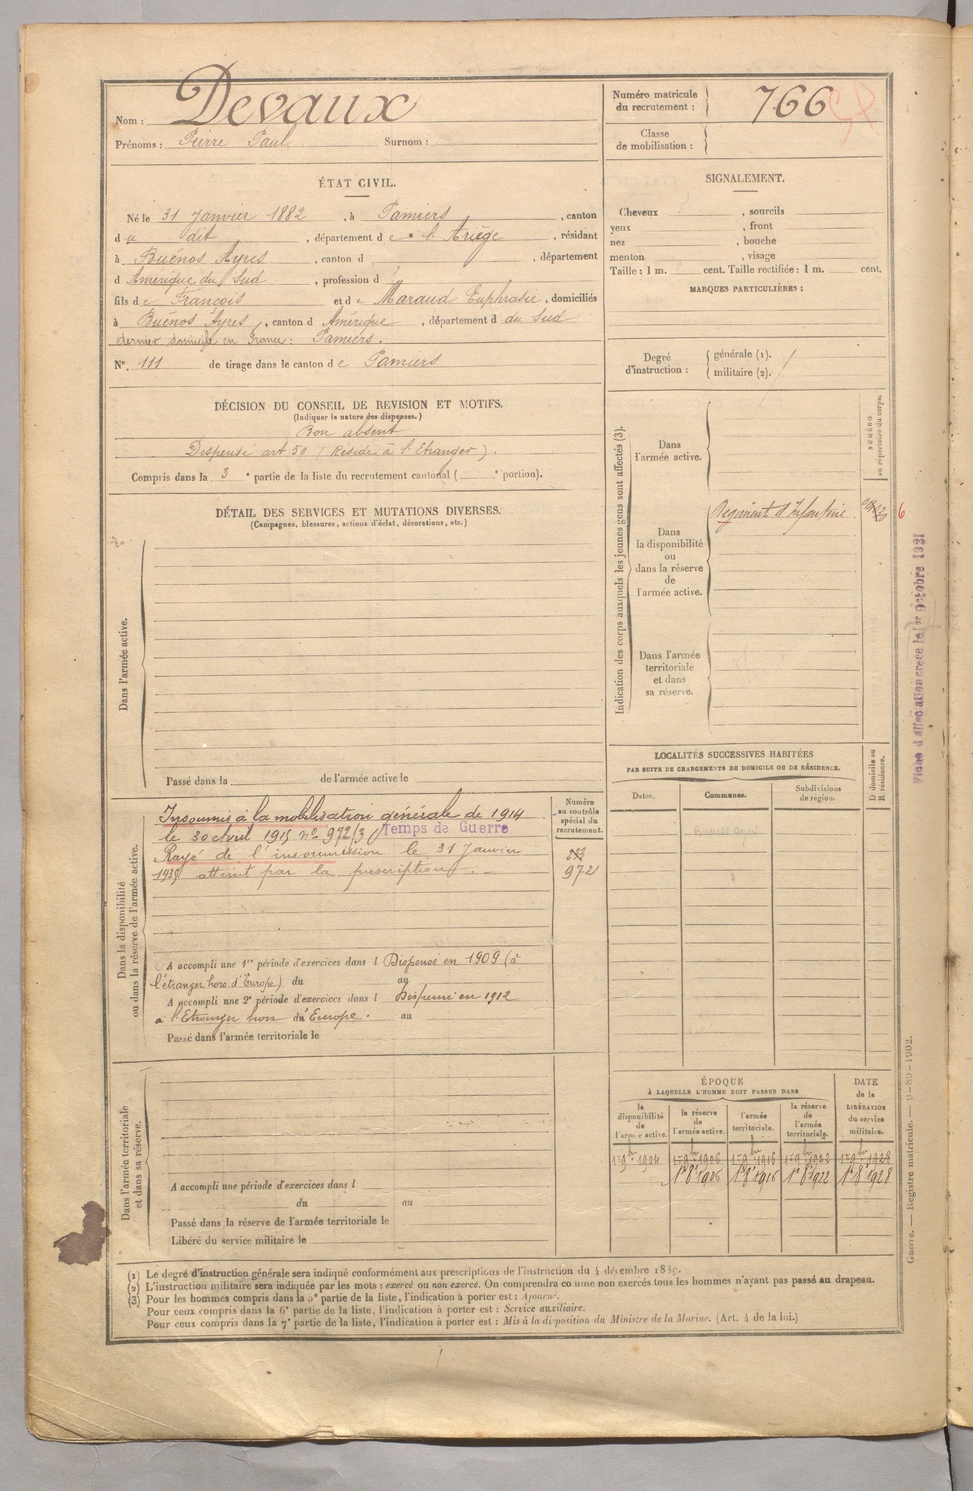 Nom : Devaux
Prénoms : Pierre Paul Surnom :
ÉTAT CIVIL.
Né le 31 Janvier 1882, à Pamiers, canton
du dit, département de l'Ariège, résidant
à Buénos Ayres, canton d , département
d Amérique du Sud, profession d
fils de François et de Maraud Euphrasie, domiciliés
à Buénos Ayres, canton d Amérique, département d du Sud
dernier domicile en France : Pamiers.
N° 111 de tirage dans le canton de Pamiers
DÉCISION DU CONSEIL DE REVISION ET MOTIFS.
(Indiquer la nature des dispenses.)
Bon absent
Dispense art 50 (Réside à l'Etranger).
Compris dans la 3e partie de la liste du recrutement cantonal ( e portion).
DÉTAIL DES SERVICES ET MUTATIONS DIVERSES.
(Campagnes, blessures, actions d'éclat, décorations, etc.)
Dans l'armée active.
Passé dans la de l'armée active le
Dans la disponibilité
ou dans la réserve de l'armée active.
Insoumis à la mobilisation générale de 1914
le 30 avril 1915 n° 972/3 Temps de Guerre
Rayé de l'insoumission le 31 Janvier
1935 atteint par la prescription.
Numéro
au contrôle
spécial du
recrutement.
972
A accompli une 1re période d'exercices dans l Dispensé en 1909 (à
l'étranger hors d'Europe) du au
A accompli une 2e période d'exercices dans l Dispensé en 1912
à l'Etranger hors d'Europe. du au
Passé dans l'armée territoriale le
Dans l'armée territoriale
et dans sa réserve.
A accompli une période d'exercices dans l
du au
Passé dans la réserve de l'armée territoriale le
Libéré du service militaire le
Numéro matricule
du recrutement : 766
Classe
de mobilisation :
SIGNALEMENT.
Cheveux , sourcils
yeux , front
nez , bouche
menton , visage
Taille : 1 m. cent. Taille rectifiée : 1 m. cent.
MARQUES PARTICULIÈRES :
Degré
d'instruction :
générale (1).
militaire (2).
Indication des corps auxquels les jeunes gens sont affectés (3).
NUMÉRO
au répertoire du corps.
Dans
l'armée active.
Dans
la disponibilité
ou
dans la réserve
de
l'armée active.
Régiment d'Infanterie
6
Dans l'armée
territoriale
et dans
sa réserve.
Fiche d'affectation créée le 1er Octobre 1921
LOCALITÉS SUCCESSIVES HABITÉES
PAR SUITE DE CHANGEMENTS DE DOMICILE OU DE RÉSIDENCE.
D domicile ou
R résidence.
Dates.
Communes.
Subdivisions
de région.
ÉPOQUE
À LAQUELLE L'HOMME DOIT PASSER DANS
DATE
de la
LIBÉRATION
du service
militaire.
la
disponibilité
de
l'armée active.
la réserve
de
l'armée active.
l'armée
territoriale.
la réserve
de
l'armée
territoriale.
1er 9bre 1904 1er 9bre 1906 1er 9bre 1916 1er 9bre 1922 1er 9bre 1928
1er 8bre 1906 1er 8bre 1916 1er 8bre 1922 1er 8bre 1928
Guerre. — Registre matricule. — 9-89-1902.
(1) Le degré d'instruction générale sera indiqué conformément aux prescriptions de l'instruction du 4 décembre 1889.
(2) L'instruction militaire sera indiquée par les mots : exercé ou non exercé. On comprendra comme non exercés tous les hommes n'ayant pas passé au drapeau.
(3) Pour les hommes compris dans la 5e partie de la liste, l'indication à porter est : Ajourné.
Pour ceux compris dans la 6e partie de la liste, l'indication à porter est : Service auxiliaire.
Pour ceux compris dans la 7e partie de la liste, l'indication à porter est : Mis à la disposition du Ministre de la Marine. (Art. 4 de la loi.)